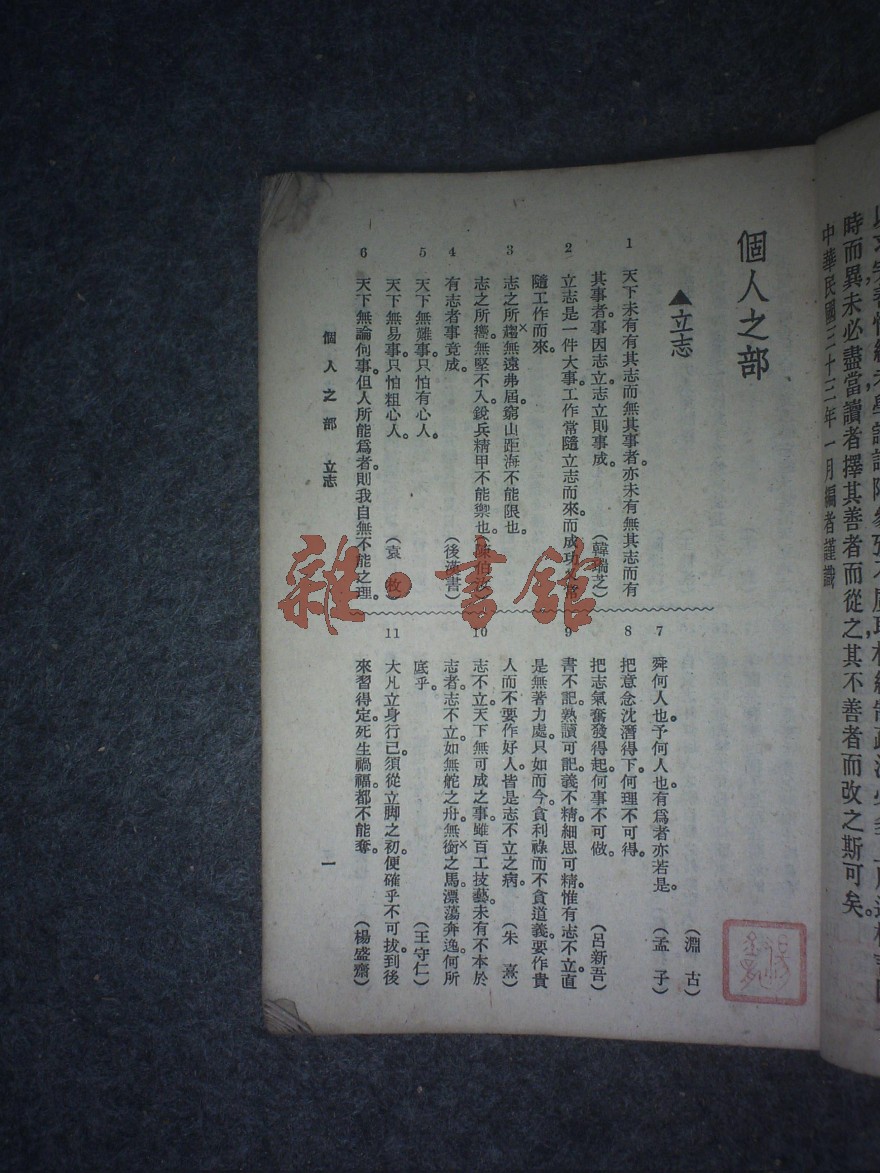 時而異未必盡當讀者擇其善者而從之其不善者而改之斯可矣。
中華民國三十三年一月編者謹識
個人之部
▲立志
1 天下未有有其志而無其事者。亦未有無其志而有
其事者。事因志立。志立則事成。(韓瑞芝)
2 立志是一件大事。工作常隨立志而來。而成功
隨工作而來。
3 志之所趨。無遠弗屆。窮山距海。不能限也。
志之所嚮。無堅不入。銳兵精甲。不能禦也。(陳伯汝)
4 有志者事竟成。(後漢書)
5 天下無難事。只怕有心人。
天下無易事。只怕粗心人。(袁牧)
6 天下無論何事。但人所能爲者。則我自無不能之理。
(淵古)
7 舜何人也。予何人也。有爲者亦若是。(孟子)
8 把意念沈潛得下。何理不可得。
把志氣奮發得起。何事不可做。(呂新吾)
9 書不記。熟讀可記。義不精。細思可精。惟有志不立。直
是無著力處。只如而今。貪利祿而不貪道義。要作貴
人而不要作好人。皆是志不立之病。(朱熹)
10 志不立。天下無可成之事。雖百工技藝。未有不本於
志者。志不立。如無舵之舟。無銜之馬。漂蕩奔逸。何所
底乎。(王守仁)
11 大凡立身行己。須從立脚之初。便確乎不可拔。到後
來習得定。死生禍福。都不能奪。(楊盛齋)
個人之部 立志
一
雜·書館